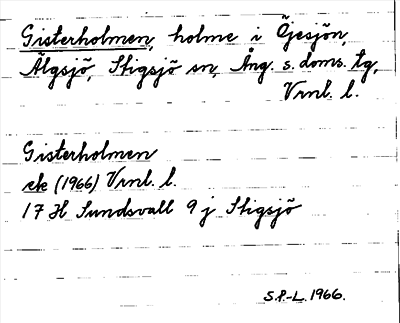 Gisterholmen, holme i Öjesjön,
Älgsjö, Stigsjö sn, Ång. s. doms. tg,
Vrnl. l.
Gisterholmen
ek (1966) Vrnl. l.
17 H Sundsvall 9 j Stigsjö
S.P.-L. 1966.